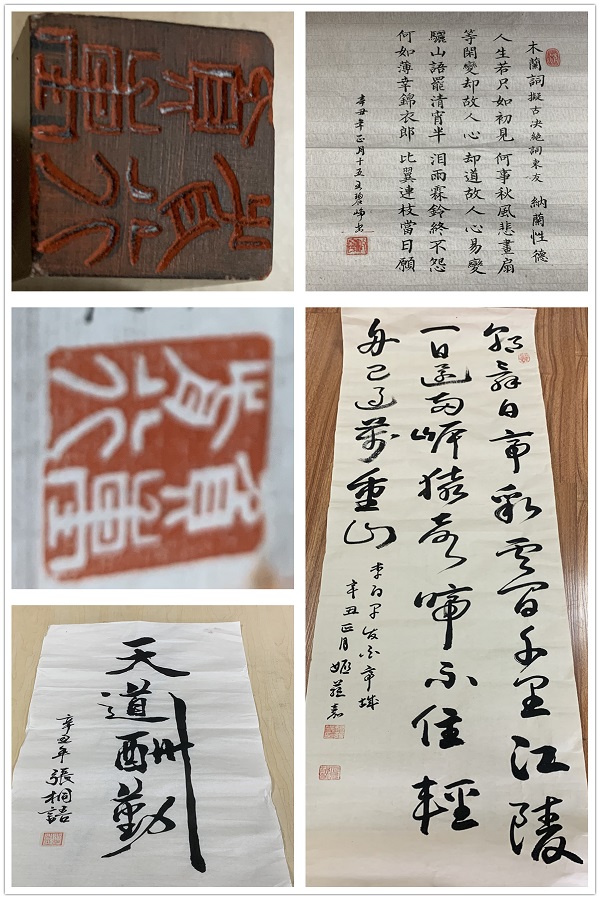 木蘭詞擬古决絶詞柬友 納蘭性德
人生若只如初見 何事秋風悲畫扇
等閑變却故人心 却道故人心易變
驪山語罷清宵半 泪雨霖鈴終不怨
何如薄幸錦衣郎 比翼連枝當日願
辛丑年正月十五
朝辭白帝彩雲間千里江陵
一日還兩岸猿聲啼不住輕
舟已過萬重山
李白早发白帝城
辛丑正月
天道酬勤
辛丑年張桐語